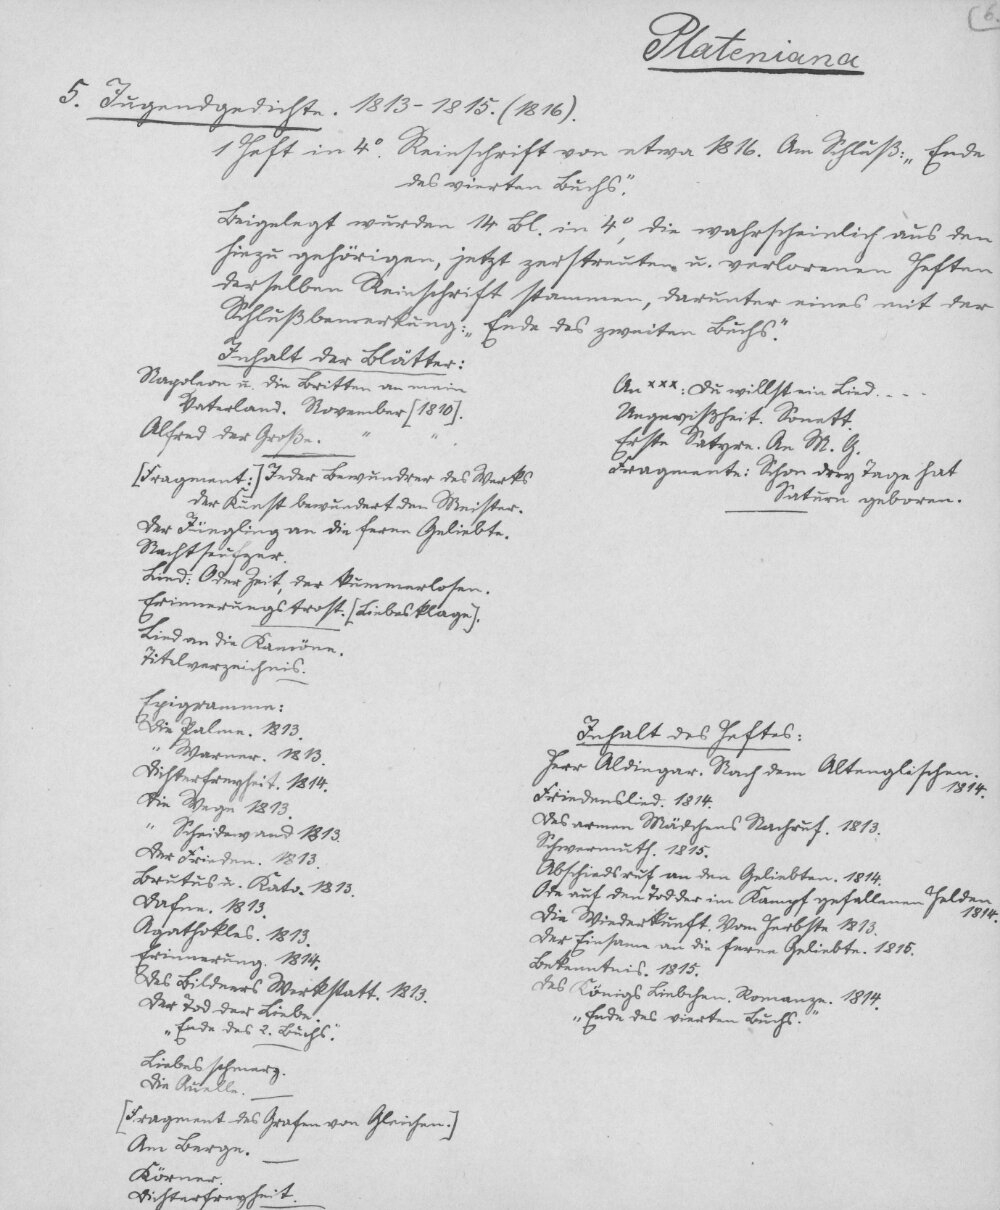 [6.
Plateniana
5. Jugendgedichte. 1813-1815. (1816).
1 Heft in 4°. Reinschrift von etwa 1816. Am Schluß: „Ende
des vierten Buchs“.
Beigelegt wurden 14 Bl. in 4°, die wahrscheinlich aus den
hiezu gehörigen, jetzt zerstreuten u. verlorenen Heften
derselben Reinschrift stammen, darunter eines mit der
Schlußbemerkung: „Ende des zweiten Buchs“.
Inhalt der Blätter:
Napoleon u. die Britten an mein
Vaterland. November [1810].
Alfred der Große. " " .
[Fragment:] Jeder Bewundrer des Werks
der Kunst bewundert den Meister.
Der Jüngling an die ferne Geliebte.
Nachtseufzer.
Lied: O der Zeit, der kummerlosen.
Erinnerungstrost. [Liebesklage].
Lied an die Kamöne.
Titelverzeichnis.
Epigramme:
Die Palme. 1813.
" Warner. 1813.
Dichterfreyheit. 1814.
Die Wege 1813.
" Scheidewand 1813.
Der Frieden. 1813.
Brutus u. Kato. 1813.
Dafne. 1813.
Agathokles. 1813.
Erinnerung. 1814.
Des Bildners Werkstatt. 1813.
Der Tod der Liebe.
„Ende des 2. Buchs“.
Liebesschmerz.
Die Quelle.
[Fragment des Grafen von Gleichen.]
Am Berge.
Körner.
Dichterfreyheit.
An xxx: Du willst ein Lied. . . .
Ungewißheit. Sonett.
Erste Satyre. An M. G.
Fragmente: Schon drey Tage hat
Saturn geboren.
Inhalt des Heftes:
Herr Aldingar. Nach dem Altenglischen.
1814.
Friedenslied. 1814.
Des armen Mädchens Nachruf. 1813.
Schwermuth. 1815.
Abschiedsruf an den Geliebten. 1814.
Ode auf den Tod der im Kampf gefallenen Helden
1814.
Die Wiederkunft. Vom Herbste 1813.
Der Einsame an die ferne Geliebte. 1815.
Bekenntnis. 1815.
Des Königs Liebchen. Romanze. 1814.
„Ende des vierten Buchs.“